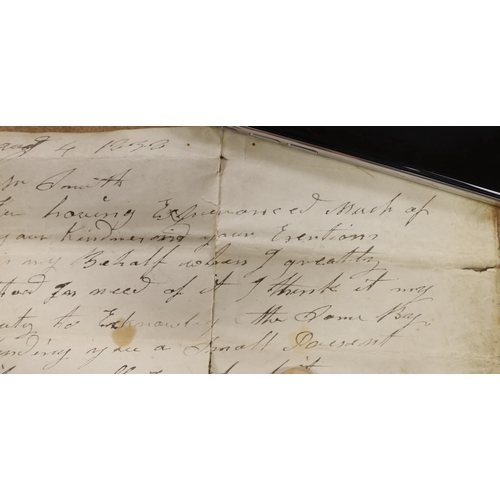 Aug 4 18
Mr Smith
having Expearanced Much of
your Kindness and your Exertions
in my Behalf when I greatly
stood in need of it I think it my
duty to Eknowleg the Same By
sending you a Small Present
it